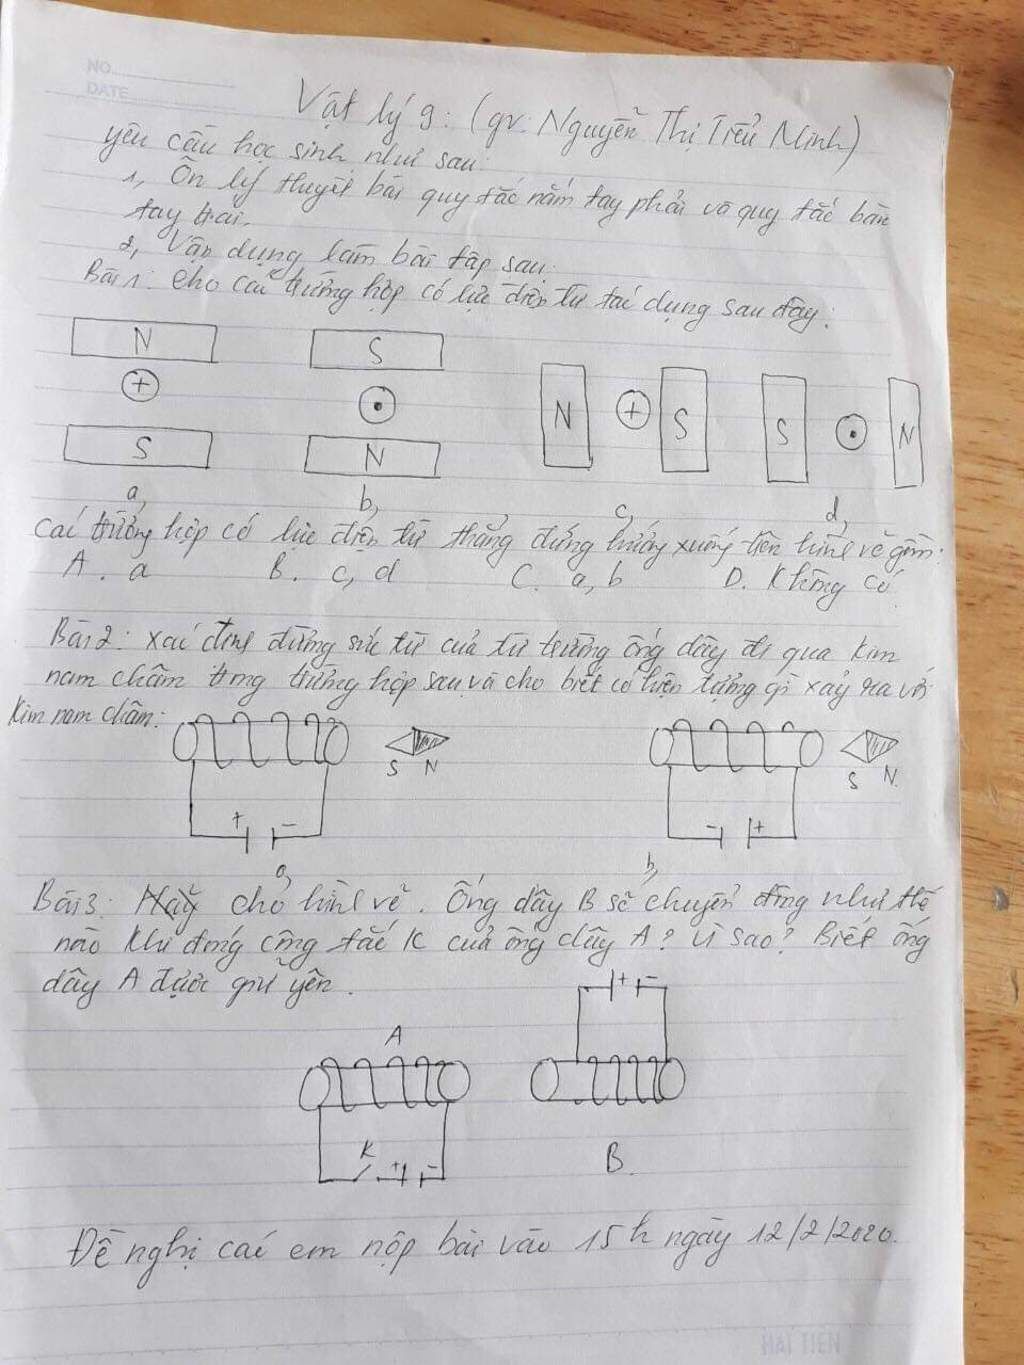 NO.
DATE
Vật lý 9: (gv: Nguyễn Thị Triều Minh)
yêu cầu học sinh như sau:
1, Ôn lý thuyết bài quy tắc nắm tay phải và quy tắc bàn
tay trái.
2, Vận dụng làm bài tập sau:
Bài 1: cho các trường hợp có lực điện từ tác dụng sau đây:
N S
+
N + S S N
S N
a, b, c, d,
các trường hợp có lực điện từ thẳng đứng hướng xuống trên hình vẽ gồm:
A. a B. c, d C. a, b D. Không có
Bài 2: xác định đường sức từ của từ trường ống dây đi qua kim
nam châm trong trường hợp sau và cho biết có hiện tượng gì xảy ra với
kim nam châm:
S N S N
+ - - +
a, b,
Bài 3: Hãy cho hình vẽ. Ống dây B sẽ chuyển động như thế
nào khi đóng công tắc K của ống dây A? Vì sao? Biết ống
dây A được giữ yên.
+ -
A
K + -
B.
Đề nghị các em nộp bài vào 15h ngày 12/2/2020.
HAI TIEN